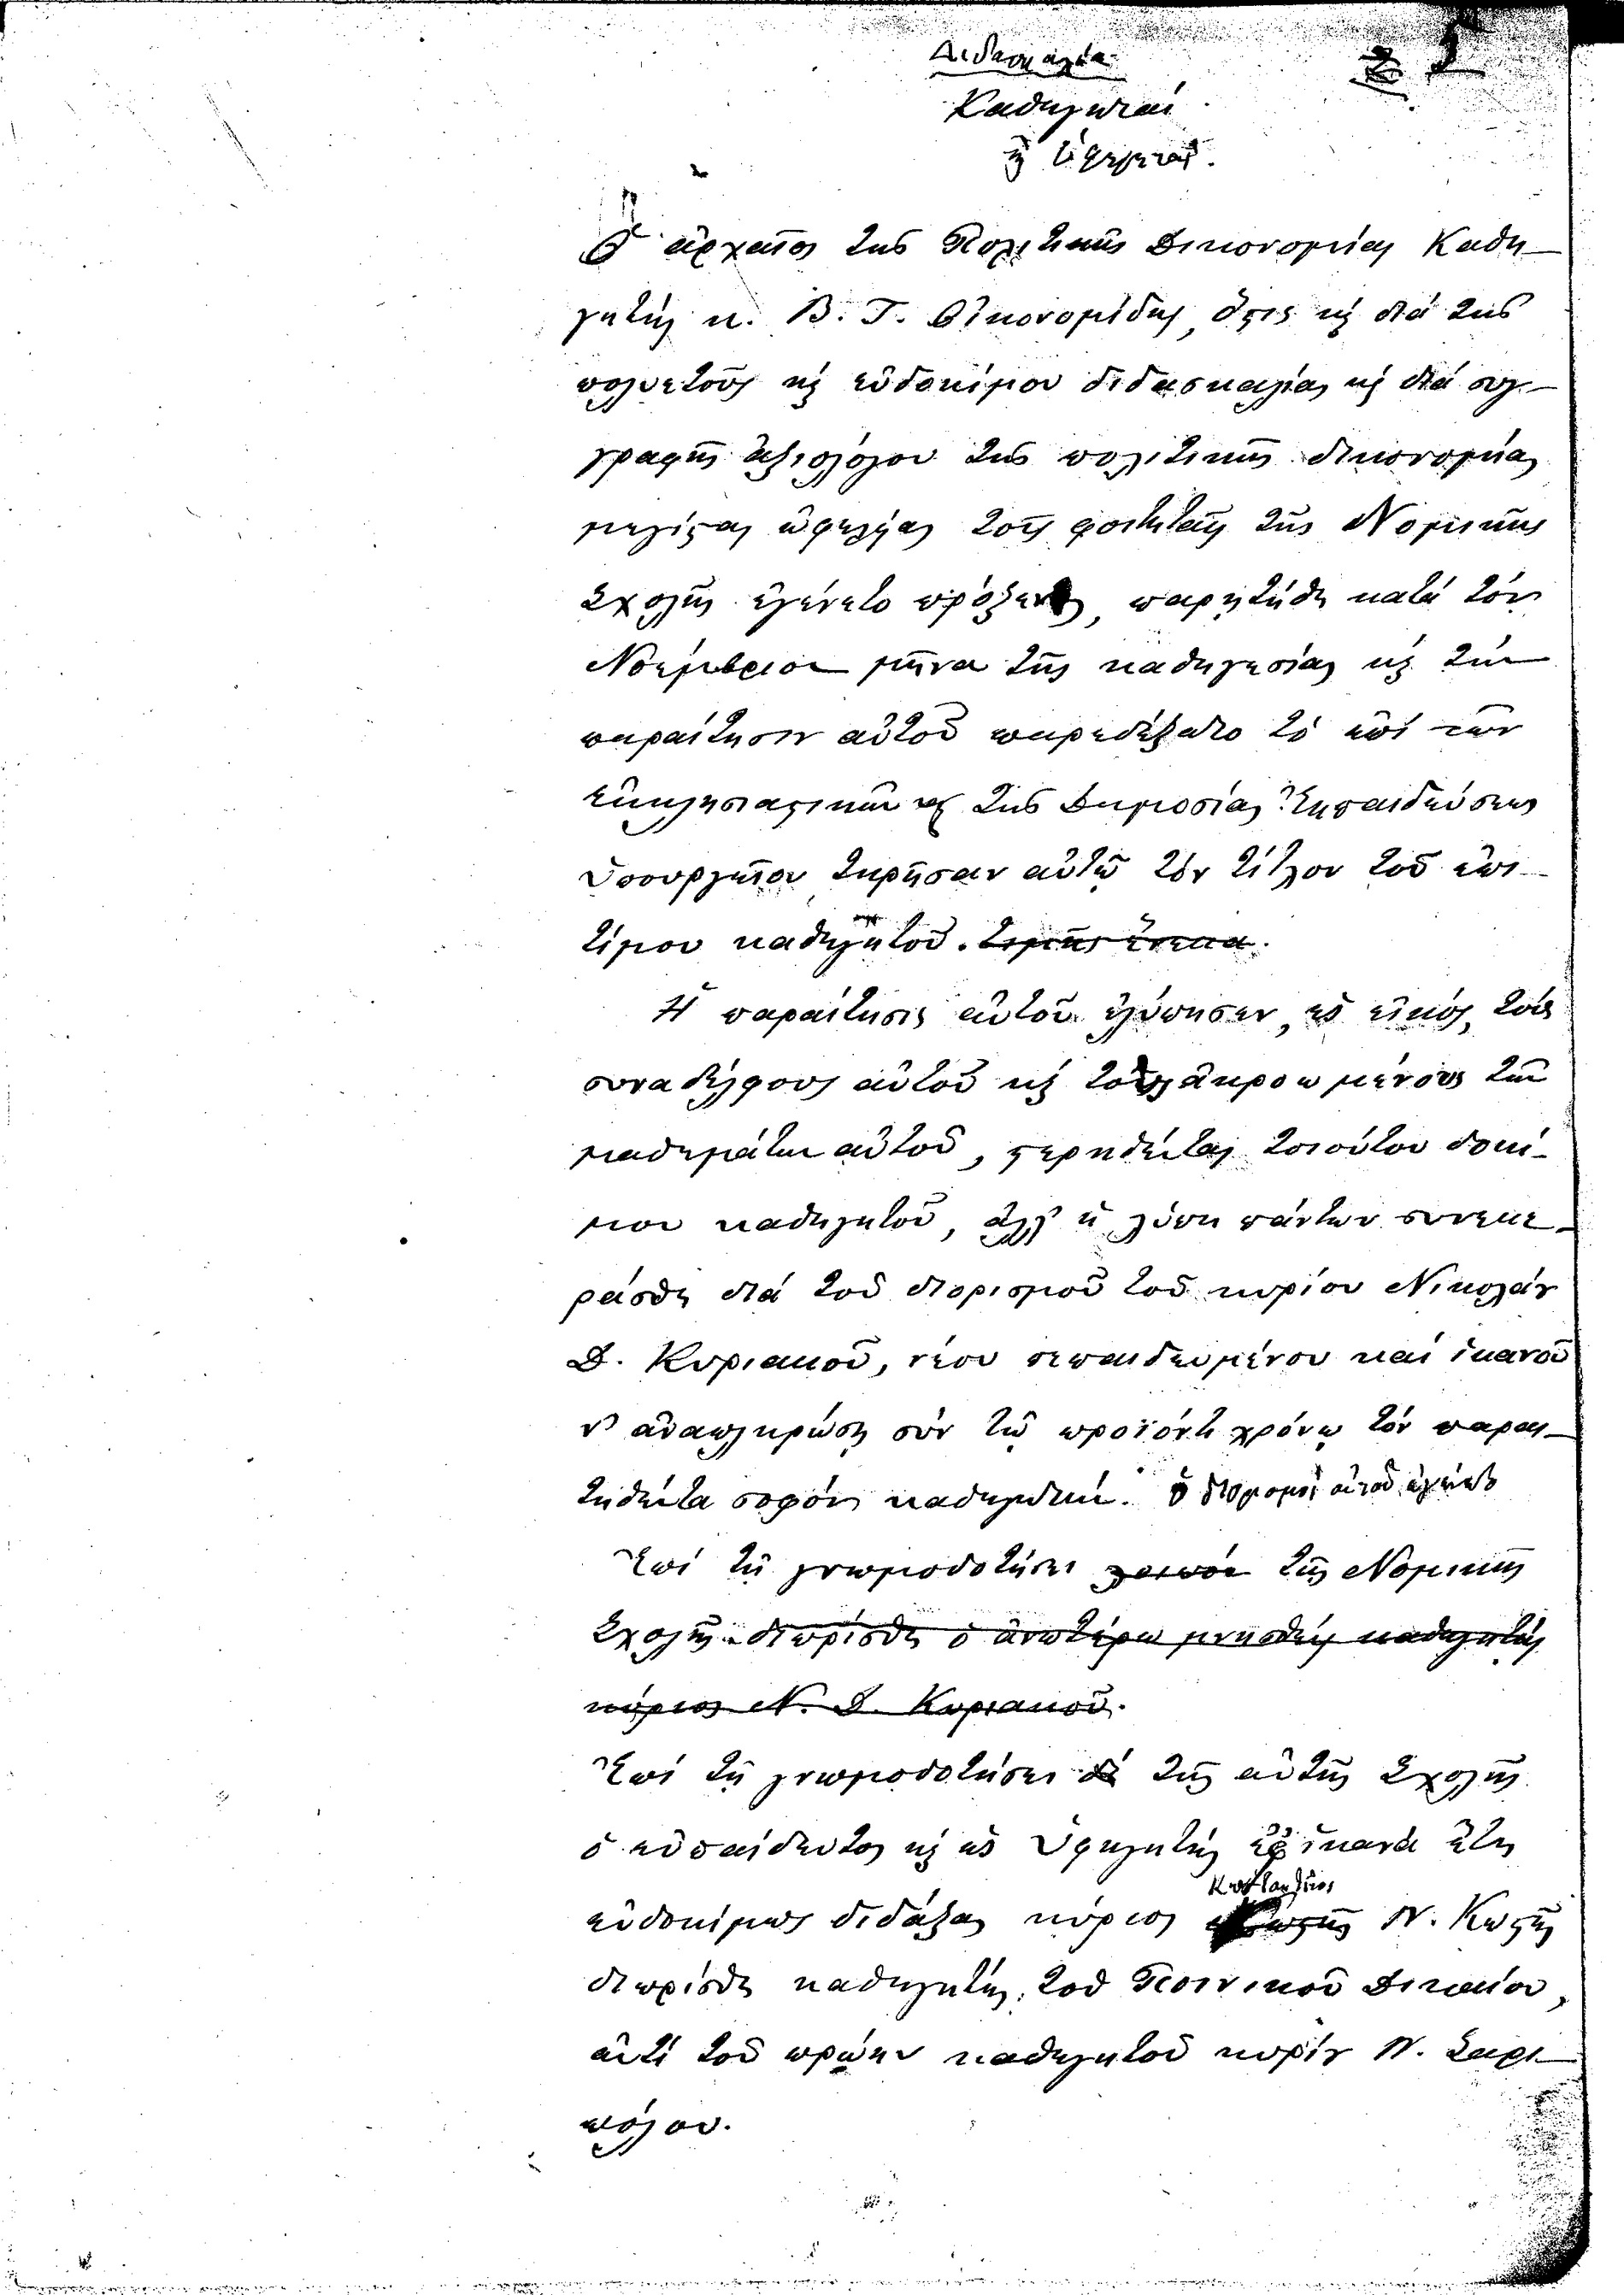 Διδασκαλία
Καθηγηταί
ϗ ὑφηγηταί.
2
Ὁ ἀρχαῖος τῆς Πολιτικῆς Δικονομίας Καθη-
γητὴς κ. Β. Γ. Οἰκονομίδης, ὅστις ϗ διὰ τῆς
πολυετοῦς ϗ εὐδοκίμου διδασκαλίας ϗ διὰ συγ-
γραφῆς ἀξιολόγου τῆς πολιτικῆς δικονομίας
μεγίστης ὠφελείας τοῖς φοιτηταῖς τῆς Νομικῆς
Σχολῆς ἐγένετο πρόξενος, παρῃτήθη κατὰ τὸν
Νοέμβριον μῆνα τῆς καθηγεσίας ϗ τὴν
παραίτησιν αὐτοῦ παρεδέξατο τὸ ἐπὶ τῶν
Ἐκκλησιαστικῶν ϗ τῆς Δημοσίας Ἐκπαιδεύσεως
Ὑπουργεῖον τηρῆσαν αὐτῷ τὸν τίτλον τοῦ ἐπι-
τίμου καθηγητοῦ. τιμῆς ἕνεκα.
Ἡ παραίτησις αὐτοῦ ἐλύπησεν, ὡς εἰκός, τοὺς
συναδέλφους αὐτοῦ ϗ τοὺς ἀκροωμένους τῶν
μαθημάτων αὐτοῦ, στερηθέντας τοιούτου δοκί-
μου καθηγητοῦ, ἀλλ' ἡ λύπη πάντων συνεκε-
ράσθη διὰ τοῦ διορισμοῦ τοῦ κυρίου Νικολάου
Δ. Κυριακοῦ, νέου πεπαιδευμένου καὶ ἱκανοῦ
ν' ἀναπληρώσῃ σὺν τῷ προϊόντι χρόνῳ τὸν παραι-
τηθέντα σοφὸν καθηγητήν. Ὁ διορισμὸς αὐτοῦ ἐγένετο
Ἐπὶ τῇ γνωμοδοτήσει λοιπὸν τῆς Νομικῆς
Σχολῆς διωρίσθη ὁ ἀνωτέρω μνησθεὶς καθηγητὴς
κύριος Ν. Δ. Κυριακοῦ.
Ἐπὶ τῇ γνωμοδοτήσει δὲ τῆς αὐτῆς Σχολῆς
ὁ εὐπαίδευτος ϗ ὡς Ὑφηγητὴς ἐφ' ἱκανὰ ἔτη
Κωνσταντῖνος
εὐδοκίμως διδάξας κύριος Ν. Κωστῆς
διωρίσθη καθηγητὴς τοῦ Ποινικοῦ Δικαίου,
ἀντὶ τοῦ πρώην καθηγητοῦ κυρίου Ν. Σαρι-
πόλου.